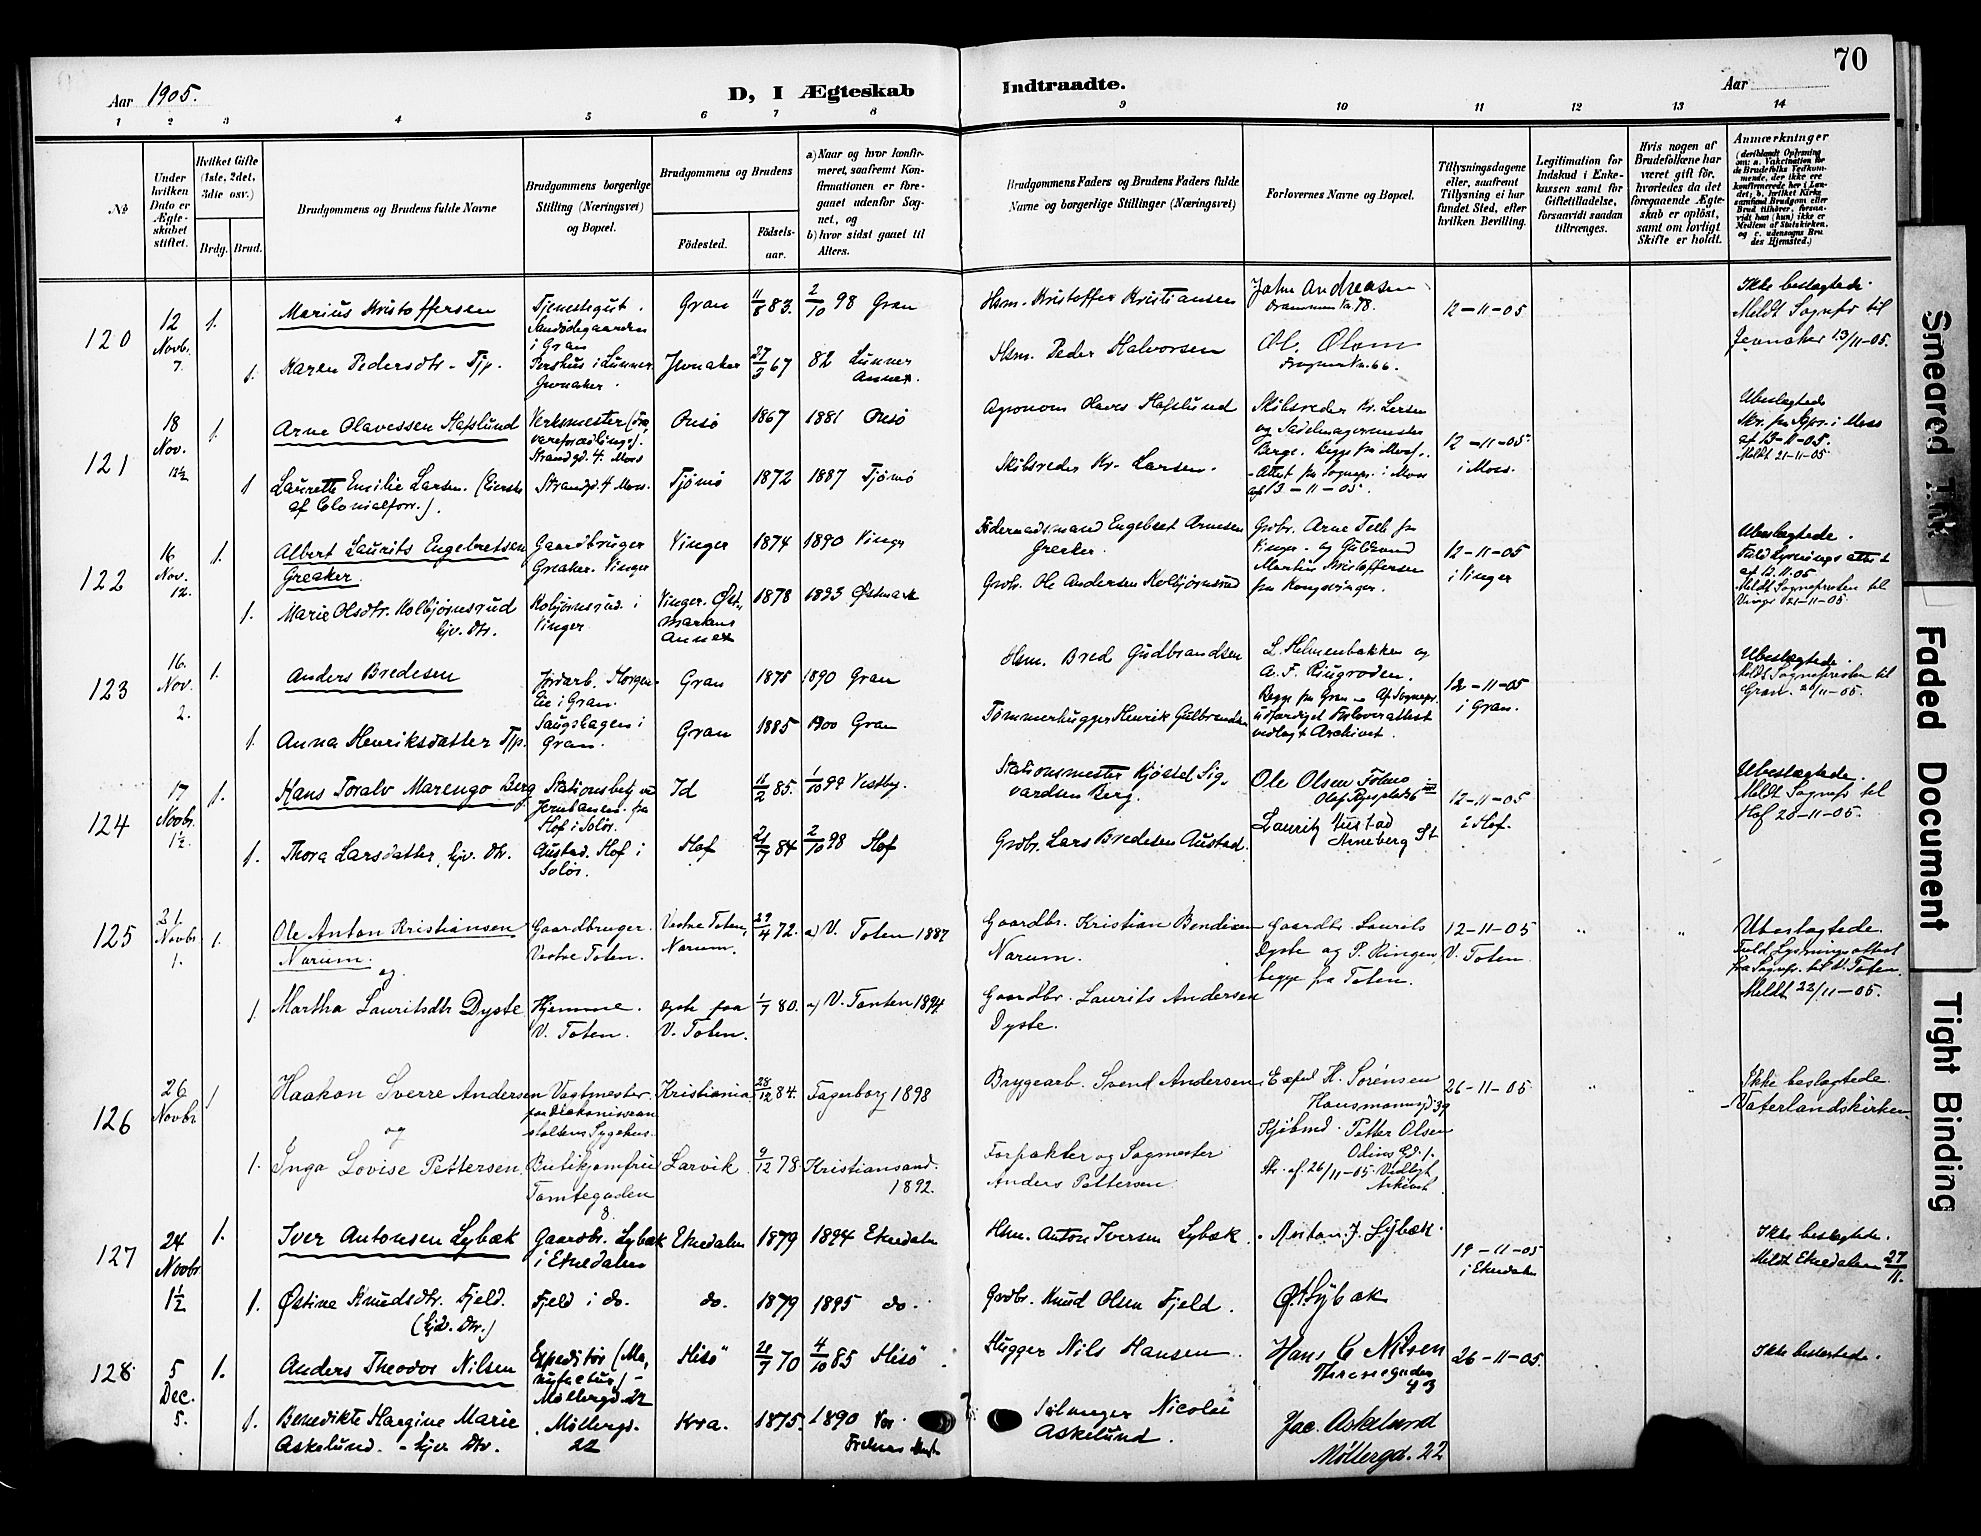 70
Aar 1905.
D, I Ægteskab Indtraadte.
Aar
1 2 3 4 5 6 7 8 9 10 11 12 13 14
№
Under hvilken Dato er Ægteskabet stiftet.
Hvilket Gifte (1ste, 2det, 3die osv.)
Brdg. Brud.
Brudgommens og Brudens fulde Navne
Brudgommens borgerlige Stilling (Næringsvei) og Bopæl.
Brudgommens og Brudens
Fødested.
Fødselsaar.
a) Naar og hvor konfirmeret, saafremt Konfirmationen er foregaaet udenfor Sognet, og
b) hvor sidst gaaet til Alters.
Brudgommens Faders og Brudens Faders fulde Navne og borgerlige Stillinger (Næringsvei)
Forlovernes Navne og Bopæl.
Tillysningsdagene eller, saafremt Tillysning ei har fundet Sted, efter hvilken Bevilling.
Legitimation for Indskud i Enkekassen samt for Giftetilladelse, forsaavidt saadan tiltrænges.
Hvis nogen af Brudefolkene har været gift før, hvorledes da det foregaaende Ægteskab er opløst, samt om lovligt Skifte er holdt.
Anmærkninger
(deriblandt Oplysning om: a. Vakcination for de Brudefolks Vedkommende, der ikke ere konfirmerede her i Landet; b. hvilket Kirkesamfund Brudgom eller Brud tilhører, forsaavidt han (hun) ikke er Medlem af Statskirken, og c. udensogns Brudes Hjemsted.)
120
12 Novb. 7.
1. Marius Kristoffersen
Tjenestegut. Sandødegaarden i Gran
Gran 11/8 83. 2/10 98 Gran
Hsm. Kristoffer Kristiansen
John Andreasen Drammensvn. 78.
12-11-05
Ikke beslægtede. Meldt Sognepr til Jevnaker 13/11-05.
1. Karen Pedersdtr. Tjp.
i Lunner Jevnaker.
Jevnaker 27/3 67 82 Lunner Annex.
Hsm. Peder Halvorsen
Ol. Olsen
Frognervn. 66.
121
18 Nov. 12½
1. Arne Olavessen Hafslund
Verksmester Strandgd. 4. Moss
Onsö 1867 1881 Onsö
Agronom Olaves Hafslund
Skibsreder Kr. Larsen og Sadelmagermester Berge. Begge fra Moss.
- Attest fra Sognepr. i Moss af 13-11-05.
12-11-05. i Moss.
Ubeslægtede
Skr. fra Sgpr. i Moss af 13-11-05.
Meldt 21-11-05.
1 Laurette Emilie Larsen. (Eierske af Colonialforr.).
Strandgd. 4 Moss.
Tjömö 1872 1887 Tjömö
Skibsreder Kr. Larsen.
122
16 Nov. 12.
1. Albert Laurits Engebretsen Greaker.
Gaardbruger Greaker. Vinger
Vinger 1874 1890 Vinger
Födernaadsmand Engebret Arnesen Greaker.
Grdbr. Arne Telb fra Vinger. og Guldsmed Martin Kristoffersen fra Kongsvinger.
12-11-05 i Vinger
Ubeslægtede.
Fuld Lysningsattest af 12.11.05
Meldt Sognepresten til Vinger 21-11-05.
1. Marie Olsdtr. Kolbjörnsrud hjv. Dtr.
Kolbjörnsrud i Vinger
Vinger. Östmarkens Annex 1878 1893 Östmark
Grdbr. Ole Andersen Kolbjörnsrud
123
16. Nov. 2.
1. Anders Bredesen
Jordarb. i Gran.
Gran 1875 1890 Gran
Hsm. Bred Gudbrandsen
L. Helmenbakken og A. F. Ringroden.
Begge fra Gran - Af Sognepr. udfærdiget Forloverattest vedlagt Archivet.
12-11-05 i Gran.
Ubeslægtede.
Meldt Sognepresten til Gran. 21/11-05.
1. Anna Henriksdatter Tjp.
Saugshagen i Gran.
Gran 1885 1900 Gran
Tømmerhugger Henrik Gulbrandsen
124
17 Novbr. 1½.
1. Hans Toralv Marengo Berg
Hof i Solör.
Id 11/2 85. 1/10 99 Vestby.
Stationsmester Kjöstel Sigvardsen Berg.
Ole Olsen
Olaf Ryesplads 6
Lauritz Austad Arneberg St
12-11-05 i Hof.
Ubeslægtede.
Meldt Sognepr til Hof 20-11-05.
1. Thora Larsdatter, hjv. Dtr.
Austad. Hof i Solör.
Hof 21/7 84 2/10 98 Hof
Grdbr. Lars Bredesen Austad.
125
21. Novbr 1.
1. Ole Anton Kristiansen Narum. og
Gaardbruger. Vestre Toten.
Vestre Toten, Narum. 29/4 72. a) V. Toten 1887
Gaardbr. Kristian Bendisen Narum.
Gaardbr. Laurits Dyste og P. Ringen, begge fra Toten.
12-11-05 V. Toten
" "
Ubeslægtede.
Fuld Lysningsattest fra Sognepr. til V. Toten.
Meldt 22/11-05.
1 Martha Lauritsdtr Dyste
Hjemme. V. Toten.
Dyste paa V. Toten. 1/7 80. a) V. Tonten 1894
Gaardbr. Laurits Andersen Dyste.
126
26 Novbr
1 Haakon Sverre Andersen og
Vagtmester paa Diakonissean staltens Sygehus.
Kristiania 28/12 84. Fagerborg 1898
Brygearb. Svend Andersen
Exped H. Sörensen Hausmannsgd 39
Kjöbmd. Petter Olsen Odins Gd. 1.
Skr. af 26/11-05 Vedlagt Arkivet.
26-11-05
" "
Ikke beslægtede.
- Vaterlandskirken.
1. Inga Lovise Pettersen.
Butikjomfru Tomtegaden 8.
Larvik. 9/12 78. Kristiansand. 1892.
Forpakter og Sagmester Anders Pettersen.
127
24 Novbr 1½
1. Iver Antonsen Lybæk
Gaardbr. Lybæk i Etnedalen
Etnedalen 1879 1894 Etnedalen
Hsm. Anton Iversen Lybæk.
Morten J. Lybæk.
19-11-05 i Etnedalen
Ikke beslægtede.
Meldt Etnedalen 27/11.
1. Östine Knudsdtr. Fjeld. (hjv. Dtr.)
Fjeld i do.
do. 1879 1895 do.
Grdbr. Knud Olsen Fjeld.
O. Lybæk
128.
5 Dec. 5.
1. Anders Theodor Nilsen
Expeditör (Manufactur) - Møllergd. 22
Hisö 21/9 70 4/10 85 Hisö
Hugger Nils Hansen.
Hans C Nilsen
43
26-11-05.
Ikke beslægtede.
1. Benedikte Hargine Marie Askelund. - hjv. Dtr.
Møllergd. 22
Kra. 1875. 1890 Vor Frelsers
Nicolai Askelund.
Jac. Askelund
Møllergd. 22
Smeared Ink
Faded Document
Tight Binding